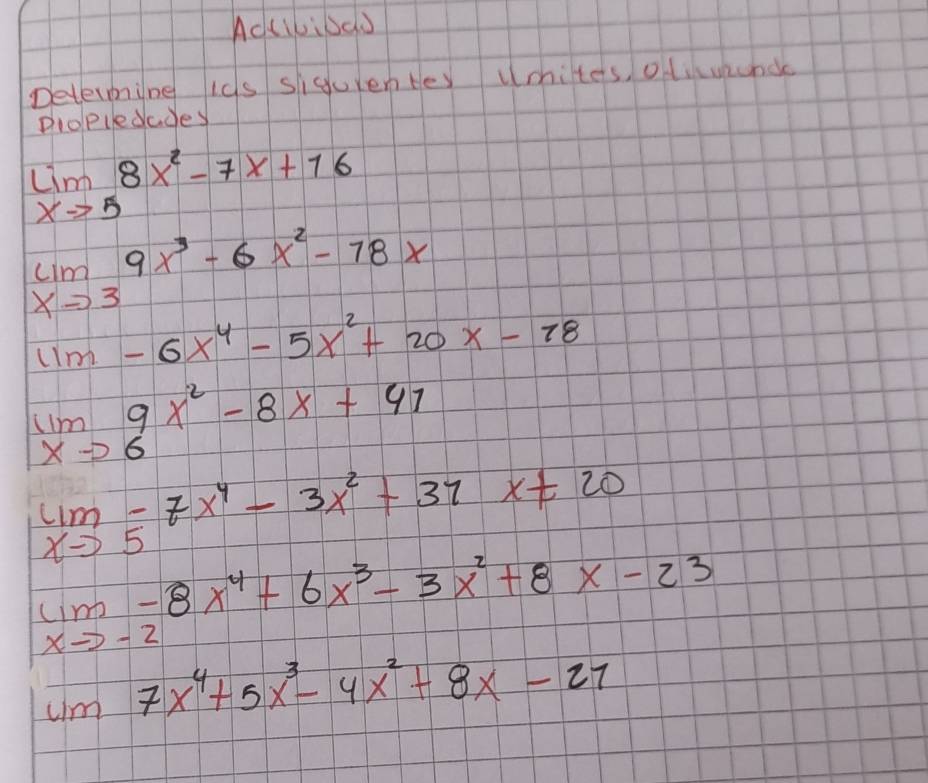 Actividad
Determine los siguientes límites, utilizando
Propiedades
Lim 8x² - 7x + 16
x → 5
Lim 9x³ - 6x² - 18x
x → 3
Lim - 6x⁴ - 5x² + 20x - 18
Lim 9x² - 8x + 41
x → 6
Lim - 7x⁴ - 3x² + 31 x + 20
x → 5
Lim - 8x⁴ + 6x³ - 3x² + 8x - 23
x → -2
Lim 7x⁴ + 5x³ - 4x² + 8x - 21